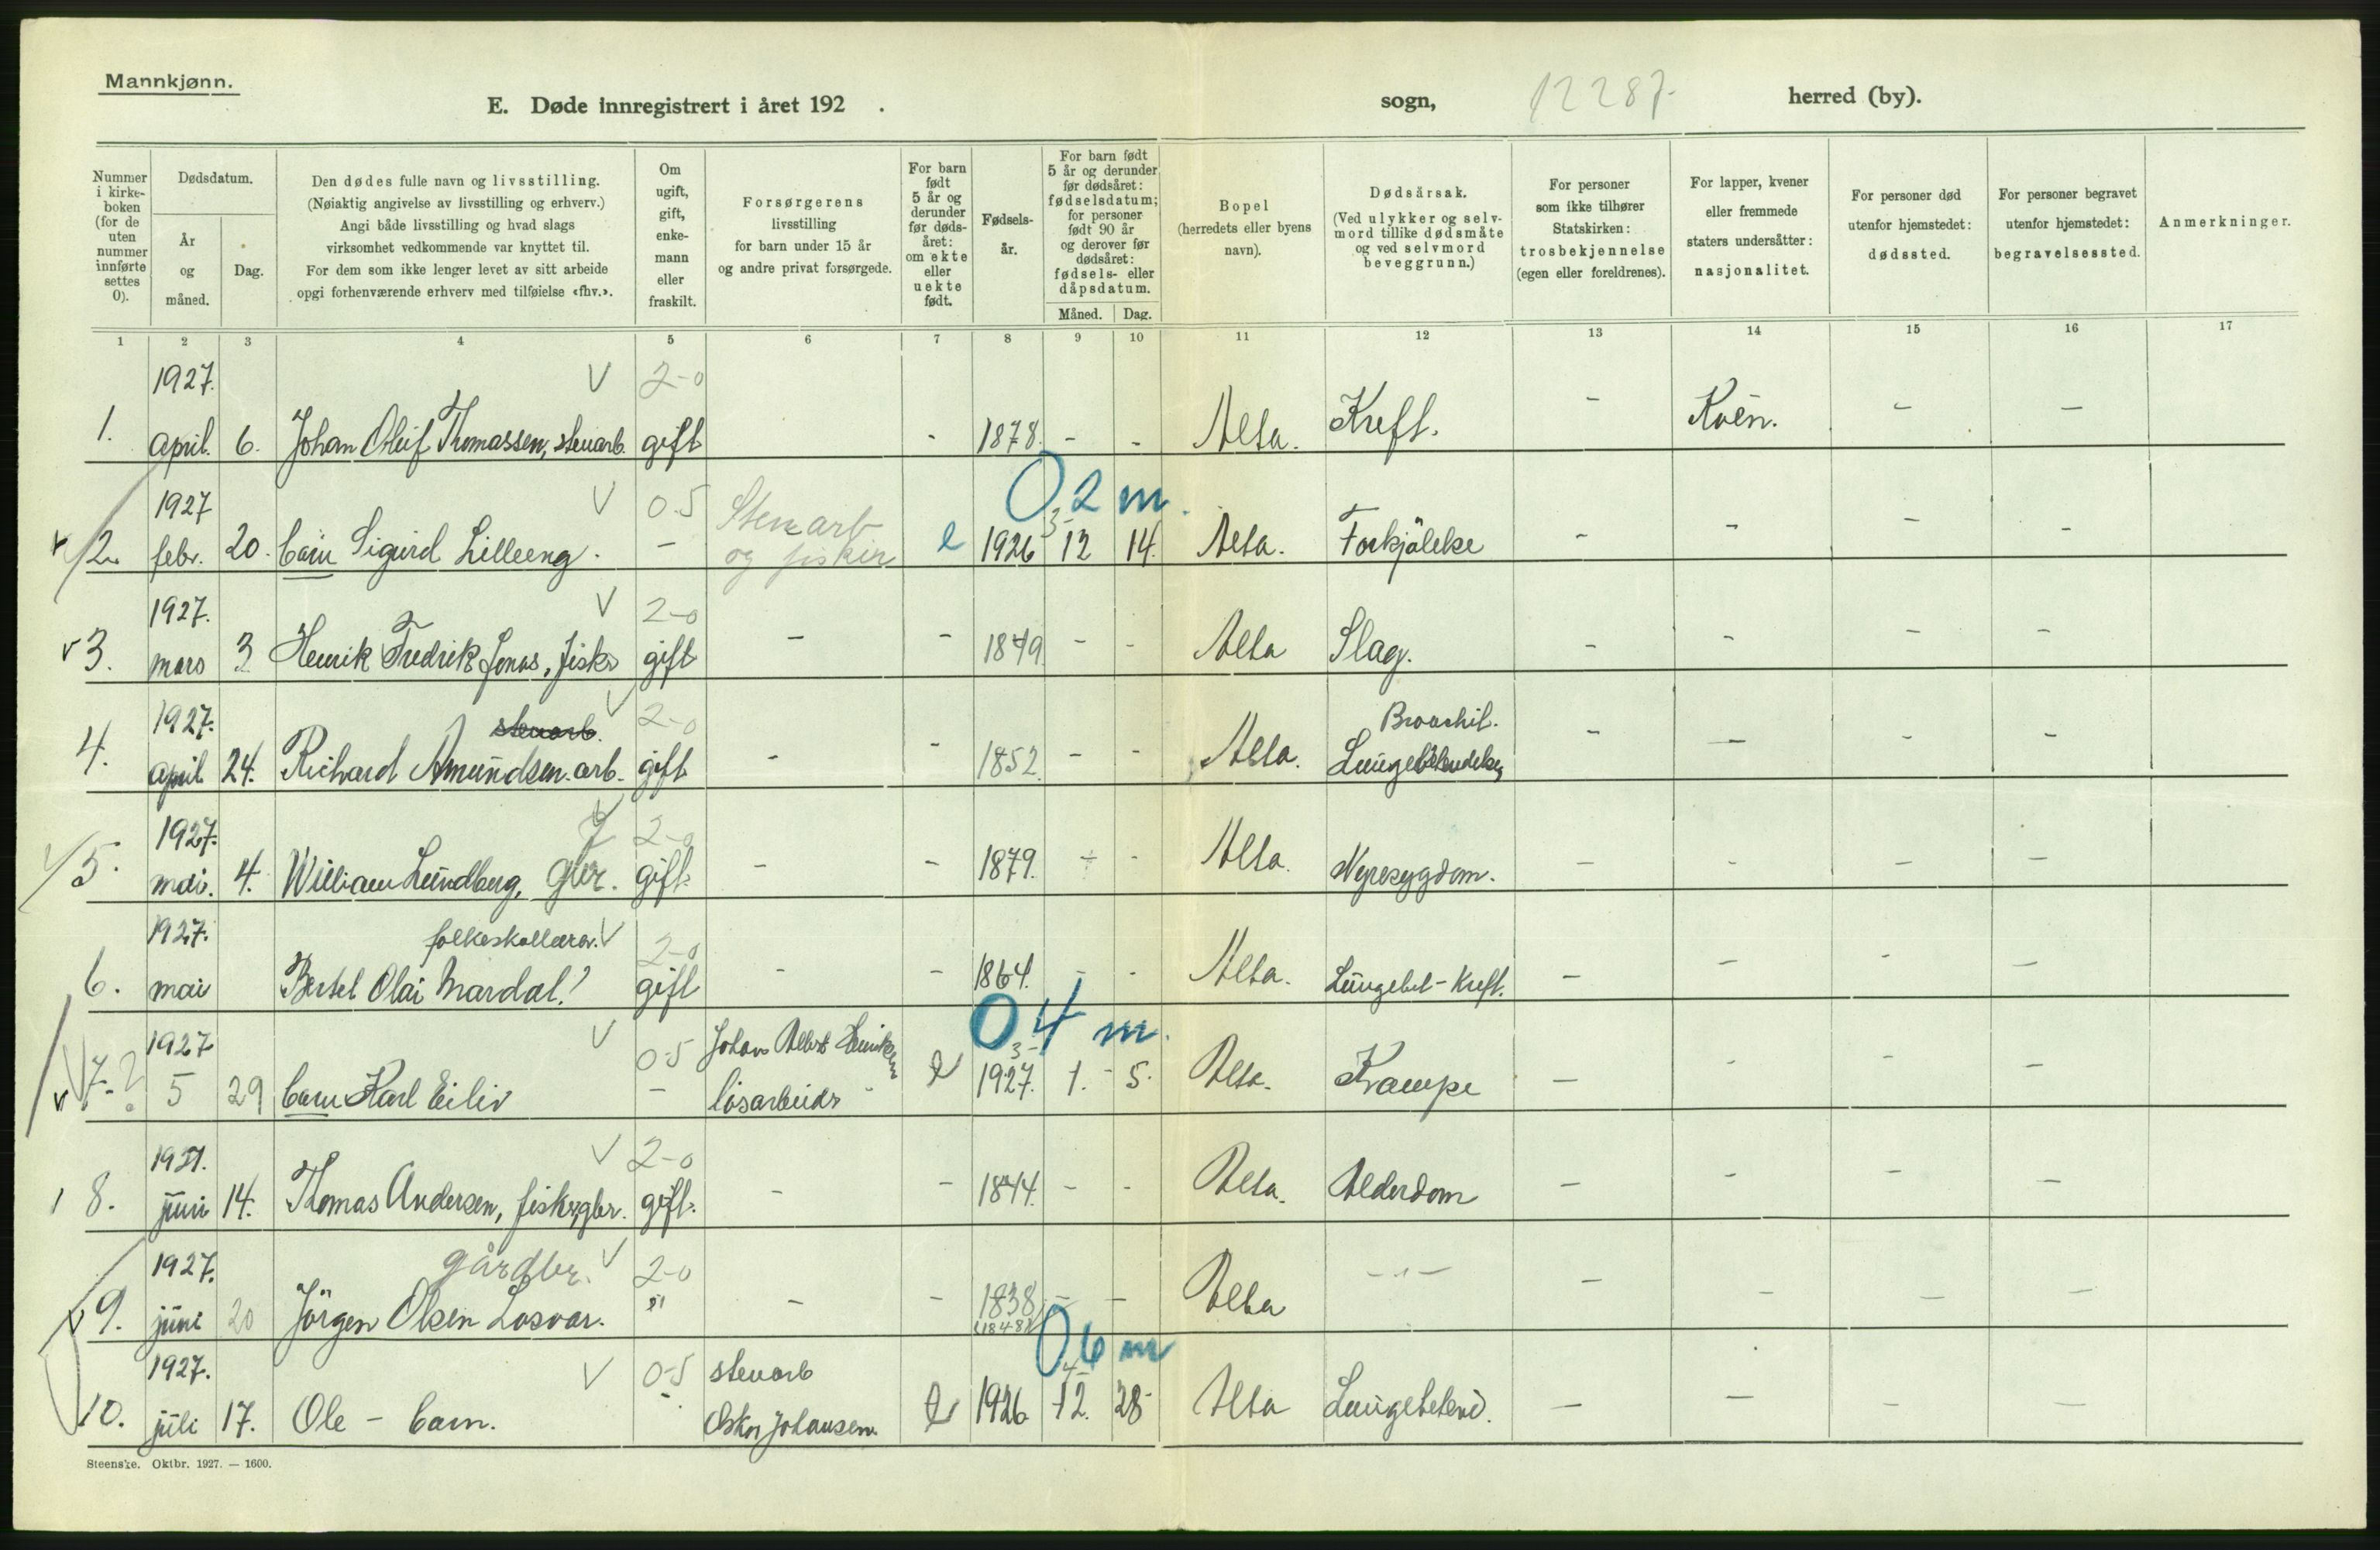 Mannkjønn.
E. Døde innregistrert i året 192 . sogn, 12287- herred (by).
Nummer i kirkeboken (for de uten nummer innførte settes 0).
Dødsdatum.
År og måned.
Dag.
Den dødes fulle navn og livsstilling.
(Nøiaktig angivelse av livsstilling og erhverv.)
Angi både livsstilling og hvad slags
virksomhet vedkommende var knyttet til.
For dem som ikke lenger levet av sitt arbeide
opgi forhenværende erhverv med tilføielse «fhv.».
Om ugift, gift, enkemann eller fraskilt.
Forsørgerens
livsstilling
for barn under 15 år
og andre privat forsørgede.
For barn født 5 år og derunder før dødsåret: om ekte eller uekte født.
Fødselsår.
For barn født 5 år og derunder før dødsåret: fødselsdatum; for personer født 90 år og derover før dødsåret: fødsels- eller dåpsdatum.
Måned. Dag.
Bopel
(herredets eller byens
navn).
Dødsårsak.
(Ved ulykker og selvmord tillike dødsmåte og ved selvmord beveggrunn.)
For personer
som ikke tilhører
Statskirken:
trosbekjennelse
(egen eller foreldrenes).
For lapper, kvener
eller fremmede
staters undersåtter:
nasjonalitet.
For personer død
utenfor hjemstedet:
dødssted.
For personer begravet
utenfor hjemstedet:
begravelsessted.
Anmerkninger.
1 2 3 4 5 6 7 8 9 10 11 12 13 14 15 16 17
1927. V 2-0
1. april. 6. Johan Oluf Thomassen, stenarb. gift - 1878. - - Alta. Kreft. - Kvên. - -
1927 V 0.5 Stenarb 02 m. 3-
2. febr. 20. barn Sigurd Lilleeng. - og fisker e 1926 12 14. Alta. Forkjölelse - - - -
1927. V 2-0
3. mars 3 Henrik Fredrik Jonas, fisker gift - - 1849 - - Alta Slag. - - - -
1927. stenarb. V 2-0 Bronchit.
4. april 24. Richard Amundsen. arb. gift - - 1852. - - Alta. Lungebetendelse - - - -
1927. V 2-0
5. mai. 4. William Lundberg, gbr. gift. - - 1879. - - Alta. Nyresygdom. - - - -
1927. folkeskollærer. V 2-0
6. mai Bertel Olai Mardal! gift - - 1864. - - Alta. Lungebet-Kreft. - - - -
1927 V 0-5 Johans Albert 04 m. 3-
7-? 5 29 barn Karl Eiliv - løsarbeider e 1927. 1. 5. Alta. Krampe - - - -
1927. V 2-0
8. juni 14. Thomas Andersen, fisker, gbr. gift. - - 1844. - - Alta. Alderdom - - - -
1927. gårdbr. V 2-0
9. juni 20 Jörgen Olsen Losvar. " - - 1838 - - Alta - - - - -
(1848) 06 m
1927. V 0-5 stenarb 4-
10. juli 17. Ole - barn. - Oskar Johansen. e 1926 12. 28- Alta Lungebetend. - - - -
Steenske. Oktbr. 1927. — 1600.